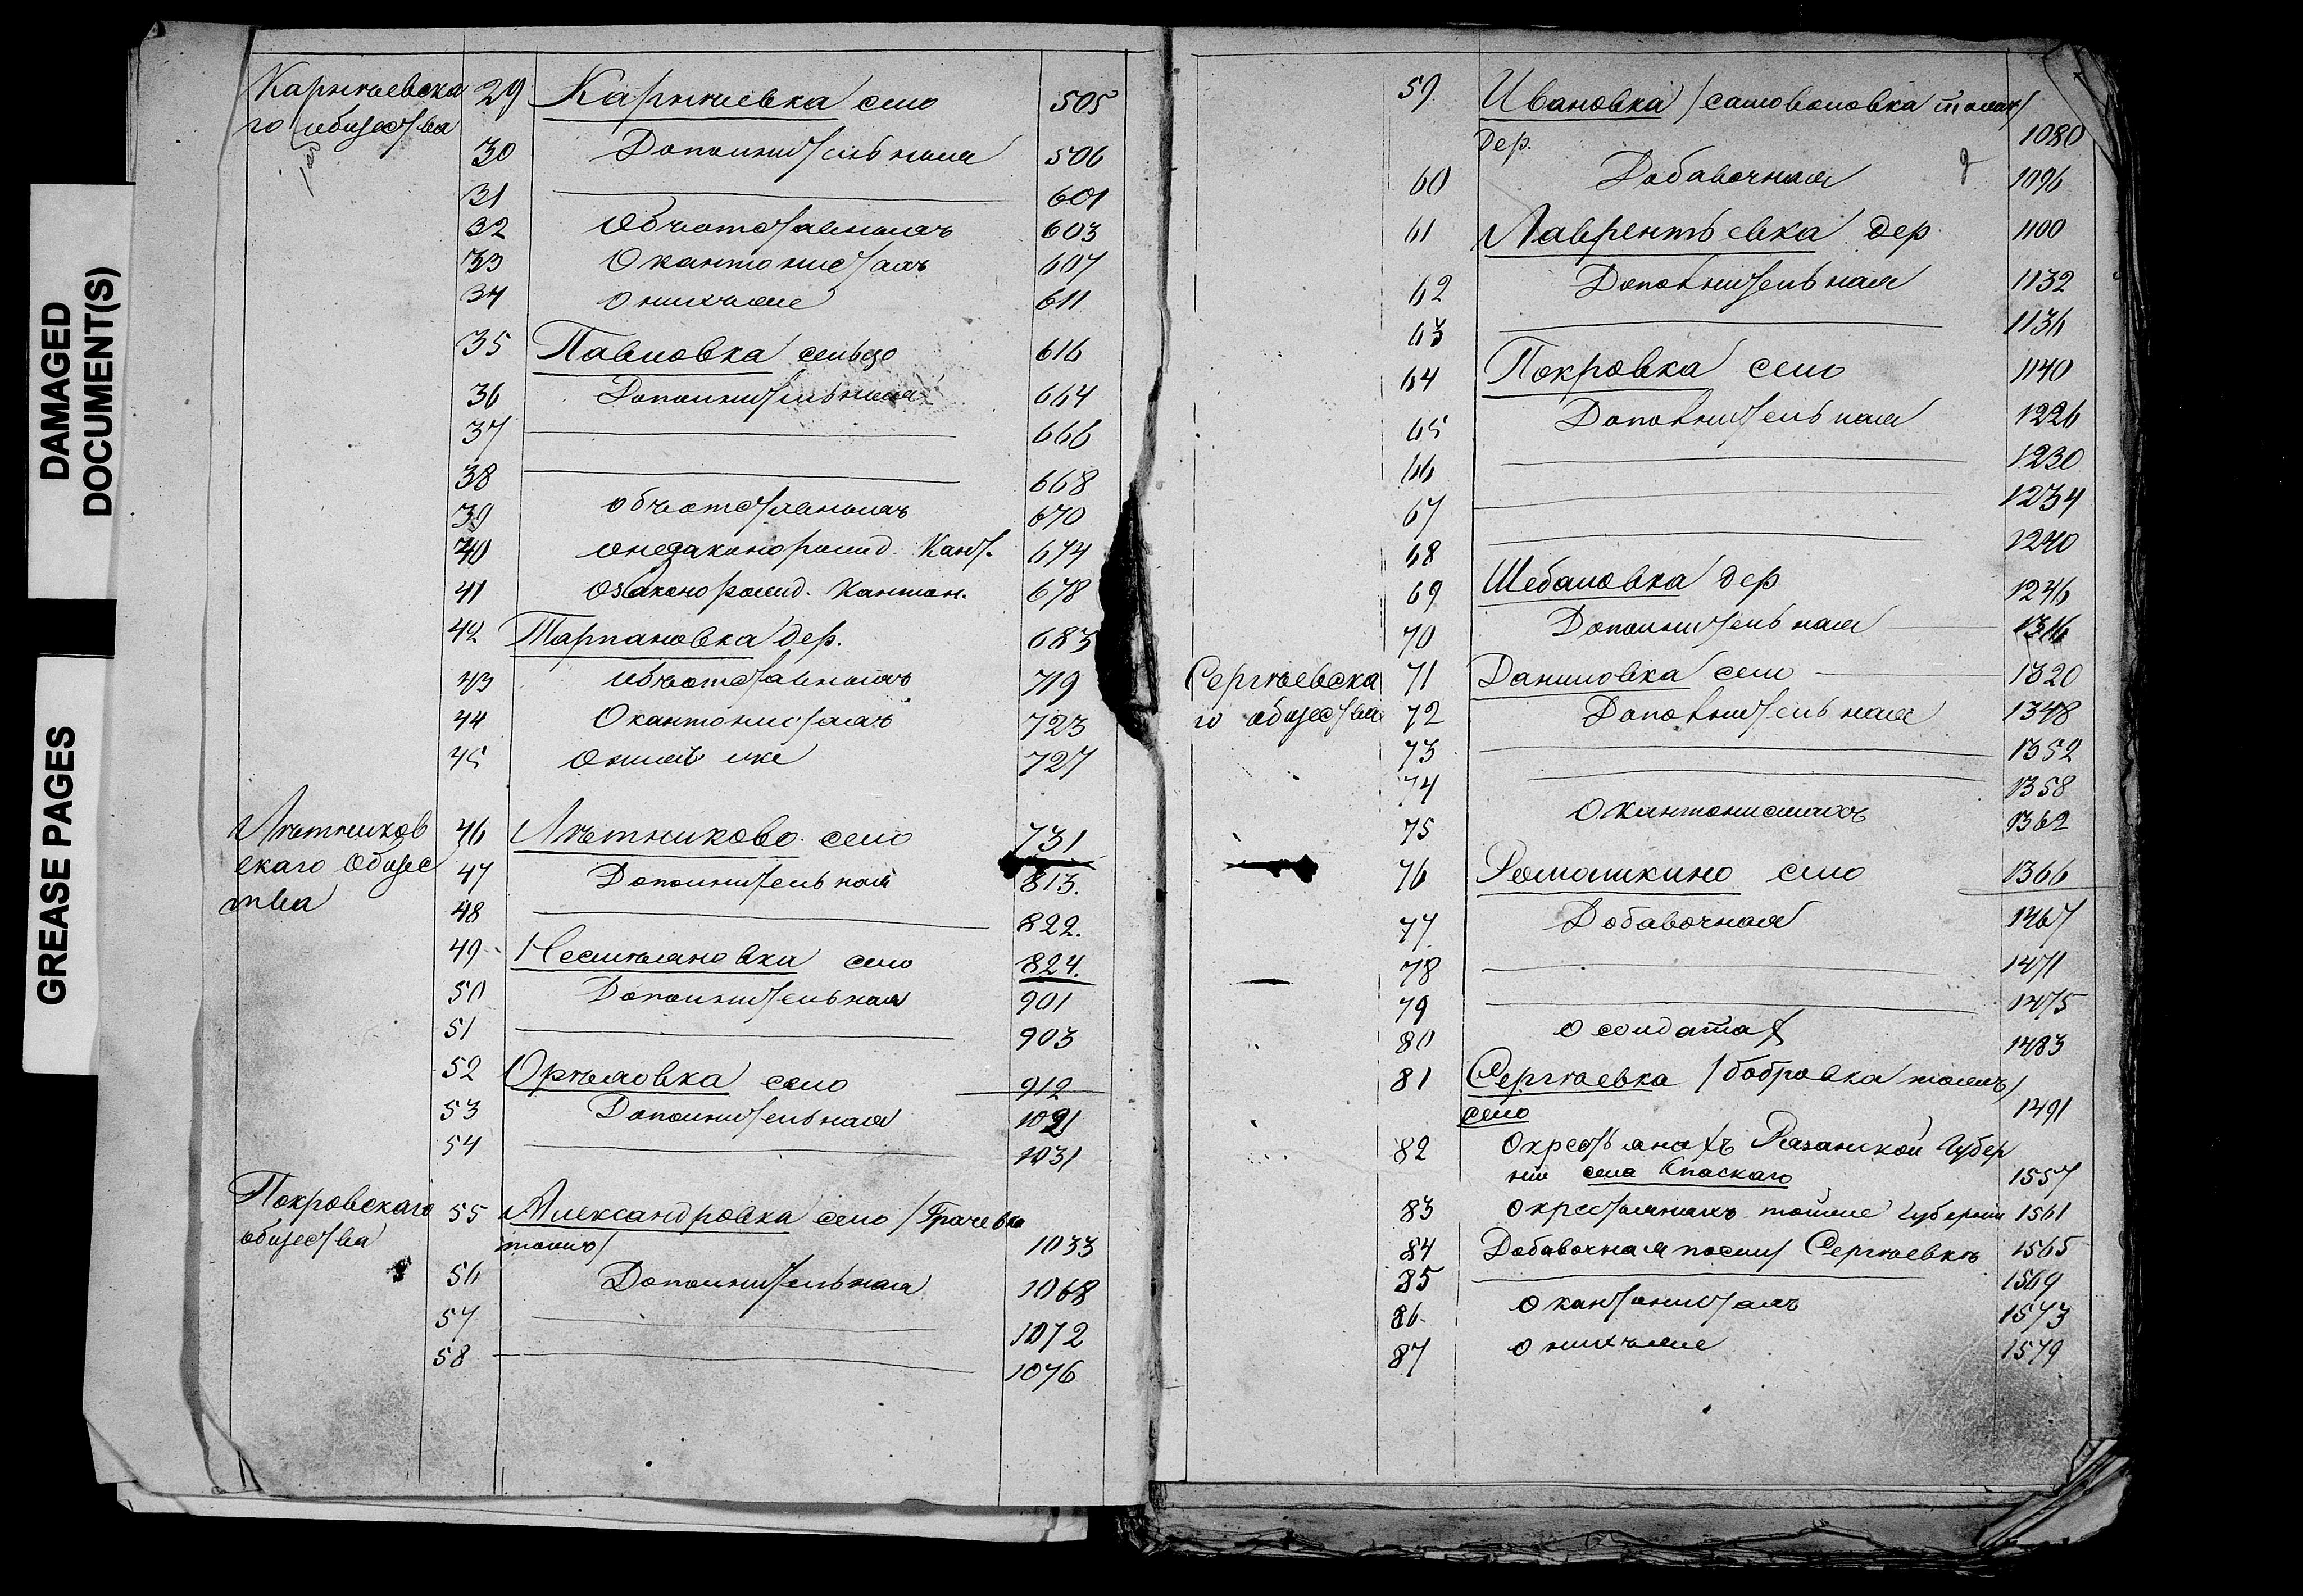 DAMAGED
DOCUMENT(S)
GREASE PAGES
Карпѣевска 29 Карпѣевка село 505
го общества
30 Дополнительная 506
31 601
32 Объ отставныхъ 603
33 О кантонистахъ 607
34 О нихъ же 611
35 Павловка сельцо 616
36 Дополнительная 664
37 666
38 668
39 объ отставныхъ 670
40 о незаконорожд. Кант. 674
41 о законорожд. Кантон. 678
42 Тарпановка дер. 683
43 объ отставныхъ 719
44 О кантонистахъ 723
45 О нихъ же 727
Лѣтников 46 Лѣтниково село 731
скаго Общес 47 Дополнительная 813.
тва
48 822.
49 Несмѣяновка село 824.
50 Дополнительная 901
51 903
52 Орѣховка село 912
53 Дополнительная 1021
54 1031
Покровскаго 55 Александровка село /Грачевка
общества тожъ/ 1033
56 Дополнительная 1068
57 1072
58 1076
59 Ивановка /самоволовка тожъ/
дер. 1080
60 Добавочная 1096
61 Лаврентьевка дер. 1100
62 Дополнительная 1132
63 1136
64 Покровка село 1140
65 Дополнительная 1226
66 1230
67 1234
68 1240
69 Шебаловка дер 1246
70 Дополнительная 1316
Сергѣевска 71 Даниловка село 1320
го общества 72 Дополнительная 1348
73 1352
74 1358
75 О кантонистахъ 1362
76 Ромашкино село 1366
77 Добавочная 1467
78 1471
79 1475
80 о солдатах 1483
81 Сергѣевка /бобровка тожъ/
село 1491
82 О крестьянахъ Рязанской Губер
ніи села Спаскаго 1557
83 О крестьянахъ той же губерніи 1561
84 Добавочная по селу Сергѣевкѣ 1565
85 1569
86. О кантонистахъ 1573
87 О нихъ же 1579